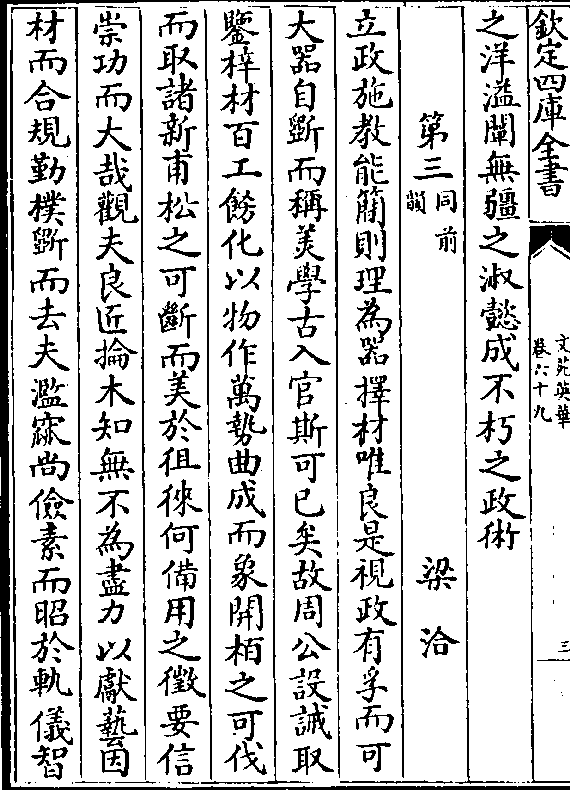 欽定四庫全書
文苑英華
卷六十九
三
之洋溢闡無疆之淑懿成不朽之政術
第三同前韻 梁洽
立政施教能簡則理為器擇材唯良是視政有孚而可
大器自斲而稱美學古入官斯可已矣故周公設誡取
鑒梓材百工飭化以物作萬勢曲成而象開栢之可伐
而取諸新甫松之可斷而美於徂徠何備用之徵要信
崇功而大哉觀夫良匠掄木知無不為盡力以獻藝因
材而合規勤樸斲而去夫濫窳尚儉素而昭於軌儀智